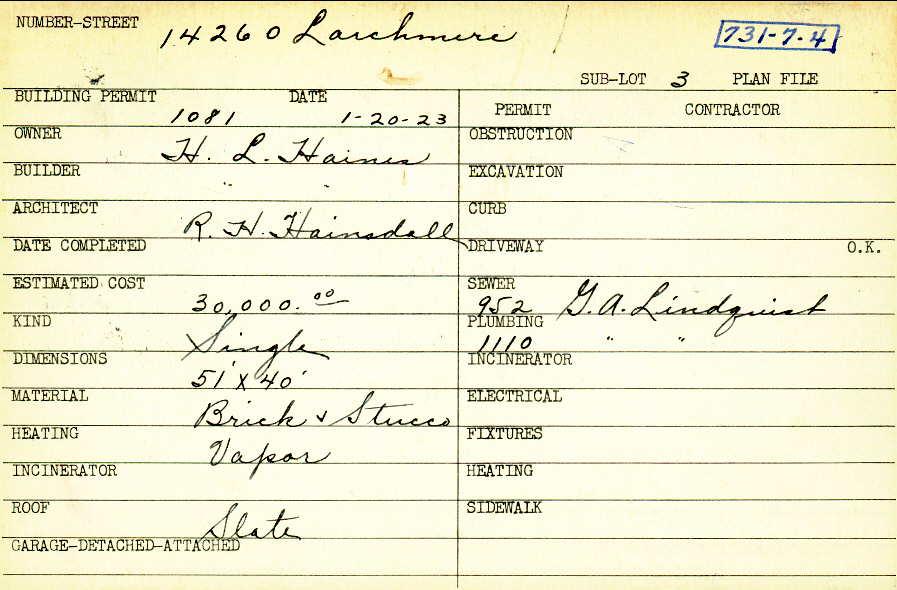 NUMBER-STREET 14260 Larchmere 731-7-4
SUB-LOT 3 PLAN FILE
BUILDING PERMIT 1081 DATE 1-20-23
OWNER H. L. Haines
BUILDER " "
ARCHITECT R. H. Hainsdall
DATE COMPLETED
ESTIMATED COST 30,000.00
KIND Single
DIMENSIONS 51' X 40'
MATERIAL Brick & Stucco
HEATING Vapor
INCINERATOR
ROOF Slate
GARAGE-DETACHED-ATTACHED
PERMIT CONTRACTOR
OBSTRUCTION
EXCAVATION
CURB
DRIVEWAY O.K.
SEWER 952 G. A. Lindquist
PLUMBING 1110 " "
INCINERATOR
ELECTRICAL
FIXTURES
HEATING
SIDEWALK